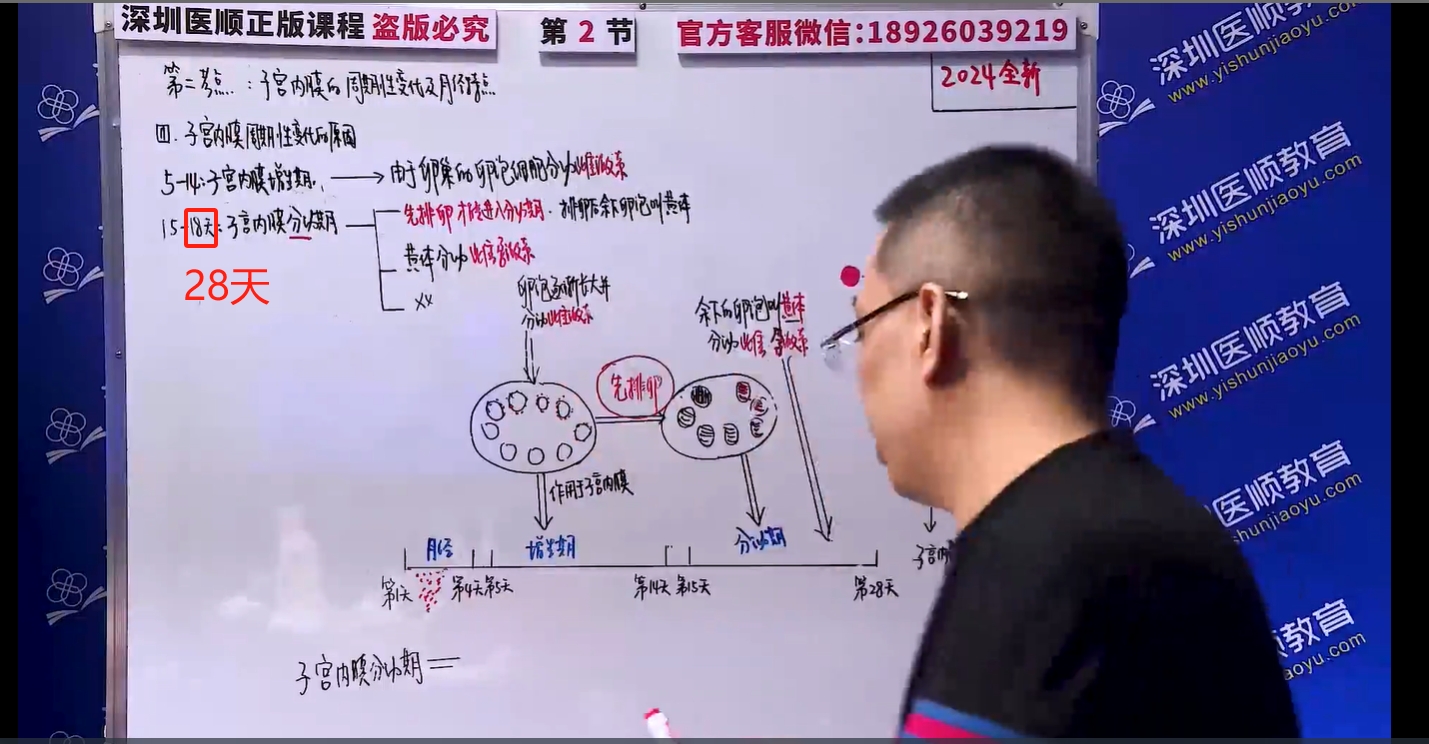 深圳医顺正版课程 盗版必究
第 2 节
官方客服微信:18926039219
2024全新
第二考点：子宫内膜的周期性变化及月经特点
四.子宫内膜周期性变化的原因
5-14:子宫内膜增生期. 由于卵巢的卵泡细胞分泌雌激素
15-18天:子宫内膜分泌期
28天
先排卵才能进入分泌期.排卵后余下卵泡叫黄体
黄体分泌雌信孕激素
XX
卵泡逐渐长大并
分泌雌激素
余下的卵泡叫黄体
分泌雌信 孕激素
先排卵
作用于子宫内膜
月经
增生期
分泌期
第1天
第4天
第5天
第14天
第15天
第28天
子宫内
子宫内膜分泌期=
深圳医顺教育
www.yishunjiaoyu.com
深圳医顺教育
www.yishunjiaoyu.com
深圳医顺教育
www.yishunjiaoyu.com
圳医顺教育
shunjiaoyu.com
教育
aoyu.com